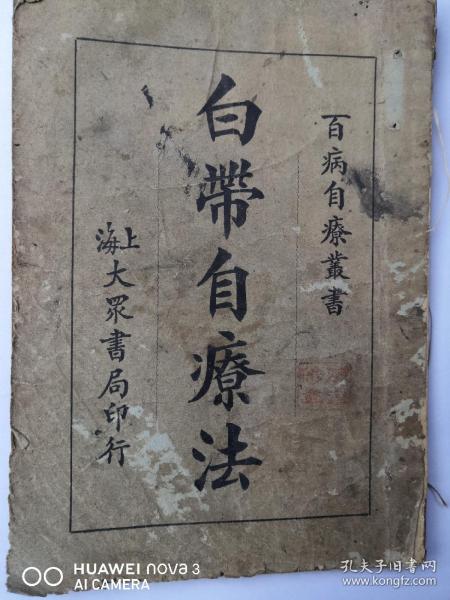 百病自療叢書
白帶自療法
上海大眾書局印行
HUAWEI nova 3
AI CAMERA
孔夫子旧书网
www.kongfz.com